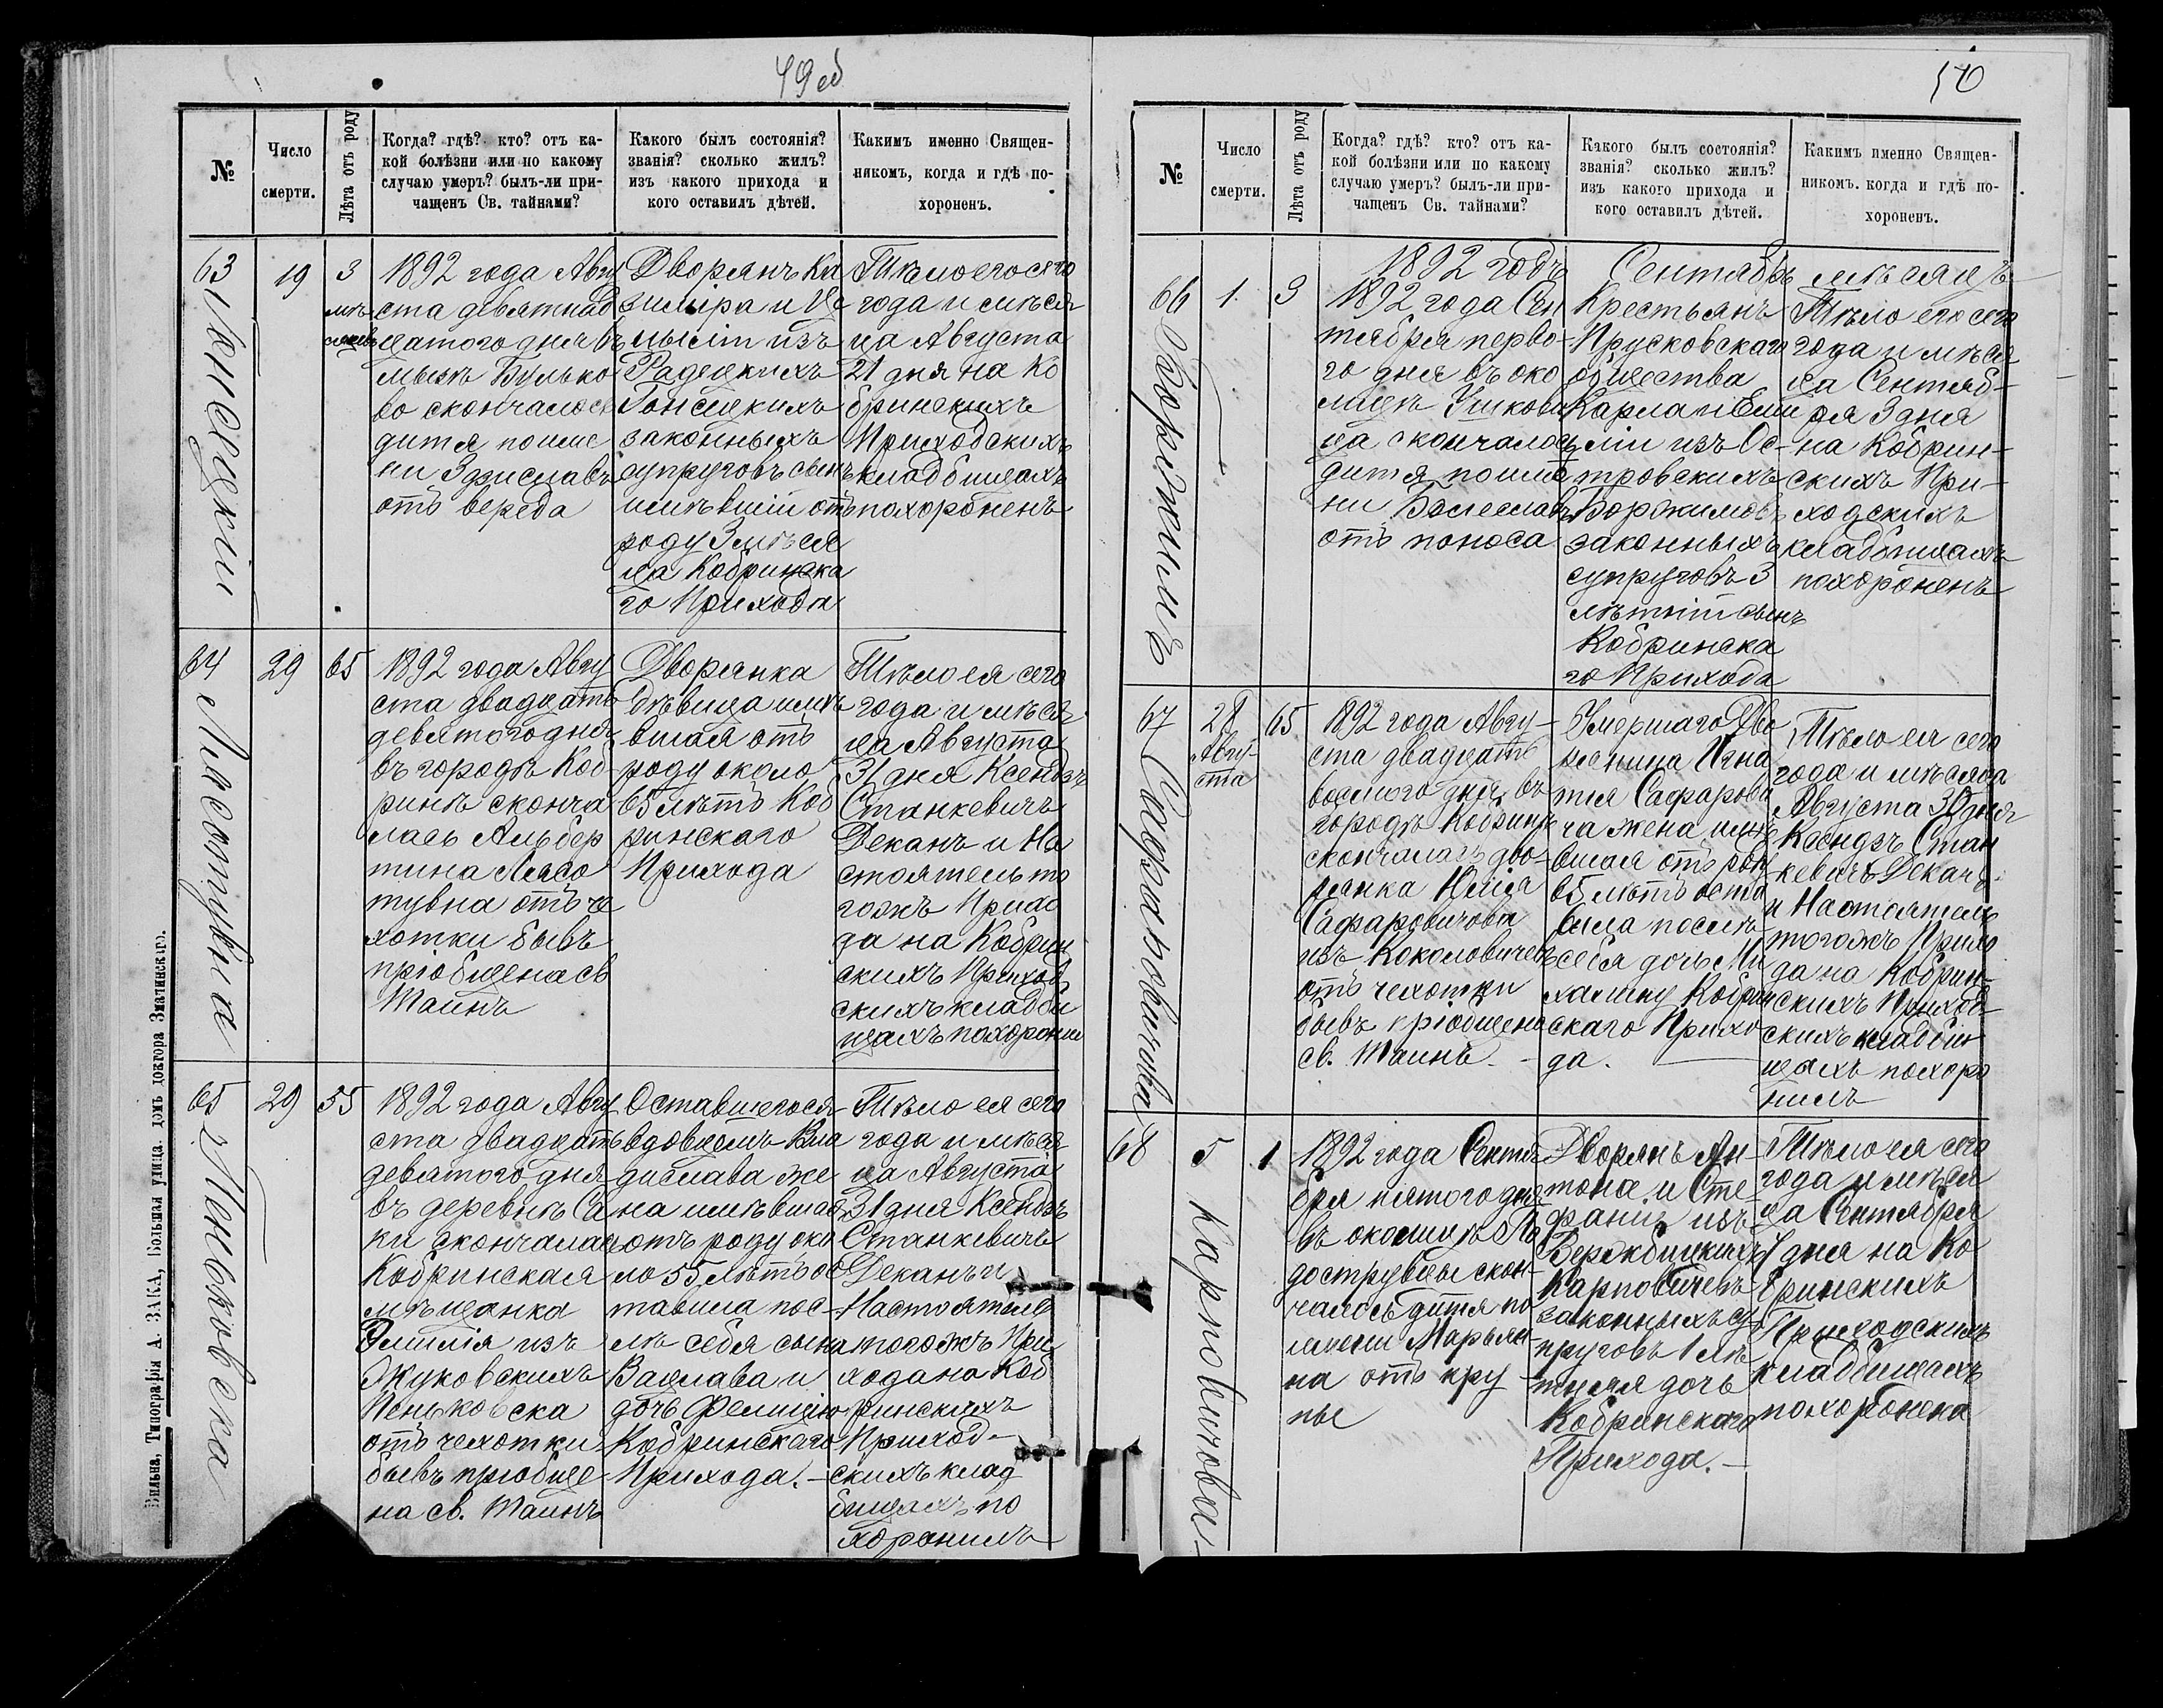 49 об
№
Число
смерти.
Лѣта отъ роду
Когда? гдѣ? кто? отъ ка-
кой болѣзни или по какому
случаю умеръ? былъ-ли при-
чащенъ Св. тайнами?
Какого былъ состоянія?
званія? сколько жилъ?
изъ какого прихода и
кого оставилъ дѣтей.
Какимъ именно Священ-
никомъ, когда и гдѣ по-
хороненъ.
63
19
3
мѣ
сяцевъ
1892 года Авгу
ста девятнад
цатого дня въ
Булько
во скончалось
дитя по име
ни Здиславъ
отъ вереда
Дворянъ Ка
зиміра и
изъ
законныхъ
супруговъ сынъ
имѣвшій отъ
роду 3 мѣся
ца Кобринска
го Прихода
Тѣло его сего
года и мѣся
ца Августа
21 дня на Ко
бринскихъ
Приходскихъ
кладбищахъ
похороненъ
64
Лясотувна
29
65
1892 года Авгу
ста двадцать
девятого дня
въ городѣ Коб
ринѣ сконча
лась Альбер
тина Лясо
тувна отъ ча
хотки бывъ
пріобщена св
Таинъ
Дворянка
Дѣвица имѣ
вшая отъ
роду около
65 лѣтъ Коб
ринскаго
Прихода
Тѣло ея сего
года и мѣся
ца Августа
31 дня Ксендзъ
Станкевичъ
Деканъ и На
стоятель то
гожъ Прихо
да на Кобрин
скихъ Приход
скихъ кладби
щахъ похоронилъ
65
Пеньковска
29
55
1892 года Авгу
ста двадцать
девятого дня
въ деревнѣ Са
ки скончалась
Кобринская
мѣщанка
Эмилія изъ
Жуковскихъ
Пеньковска
отъ чахотки
бывъ пріобще
на св. Таинъ
Оставшегося
вдовцомъ Вла
дислава же
на имѣвшая
отъ роду око
ло 55 лѣтъ ос
тавила пос-
лѣ себя сына
Вацлава и
дочь Фелицію
Кобринскаго
Прихода. —
Тѣло ея сего
года и мѣся
ца Августа
31 дня Ксендзъ
Станкевичъ
Деканъ и
Настоятель
тогожъ При
хода на Коб
ринскихъ
Приход-
скихъ клад
бищахъ по
хоронилъ
Вильна, Типографія А. ЗАКА, Большая улица. домъ доктора
50
№
Число
смерти.
Лѣта отъ роду
Когда? гдѣ? кто? отъ ка-
кой болѣзни или по какому
случаю умеръ? былъ-ли при-
чащенъ Св. тайнами?
Какого былъ состоянія?
званія? сколько жилъ?
изъ какого прихода и
кого оставилъ дѣтей.
Какимъ именно Священ-
никомъ. когда и гдѣ по-
хороненъ.
1892 годъ Сентябрь мѣсяцъ
66
Боржимъ
1.
3
1892 года Сен
тября перво-
го дня въ око
лицѣ
ца скончалось
дитя по име
ни Болеславъ
отъ поноса
Крестьянъ
Прусковскаго
общества
Карла и Еми
ліи изъ Ос-
тровскихъ
Боржимовъ
законныхъ
супруговъ 3
лѣтній сынъ
Кобринска
го Прихода
Тѣло его сего
года и мѣся
ца Сентяб-
ря 3 дня
на Кобрин-
скихъ При-
ходскихъ
кладбищахъ
похороненъ
67
Сафаровичова
28
Авгу-
ста
65
1892 года Авгу-
ста двадцать
восмого дня въ
городѣ Кобринѣ
скончалась дво-
рянка Юлія
Сафаровичова
изъ Коколовичевъ
отъ чахотки
бывъ пріобщена
св. Таинъ. —
Умершаго Дво
рянина Игна
тія Сафарови
ча жена имѣ
вшая отъ роду
65 лѣтъ оста
вила послѣ
себя дочь Ми
халину Кобрин
скаго Прихо
да. —
Тѣло ея сего
года и мѣсяца
Августа 30 дня
Ксендзъ Стан
кевичъ Деканъ
и Настоятель
тогожъ Прихо
да на Кобрин-
скихъ Приход-
скихъ кладби
щахъ похоро
нилъ
68
Карповичова
5
1
1892 года Сентя-
бря пятого дня
въ околицѣ
скон-
чалось дитя по
имени Марьян-
на отъ кру-
пы
Дворянъ Ан
тона и Сте-
фаніи изъ
Вержбицкихъ
Карповичевъ
законныхъ су-
пруговъ 1 лѣ-
тняя дочь
Кобринскаго
Прихода. —
Тѣло ея сего
года и мѣся
ца Сентября
7 дня на Ко
бринскихъ
Приходскихъ
кладбищахъ
похоронена